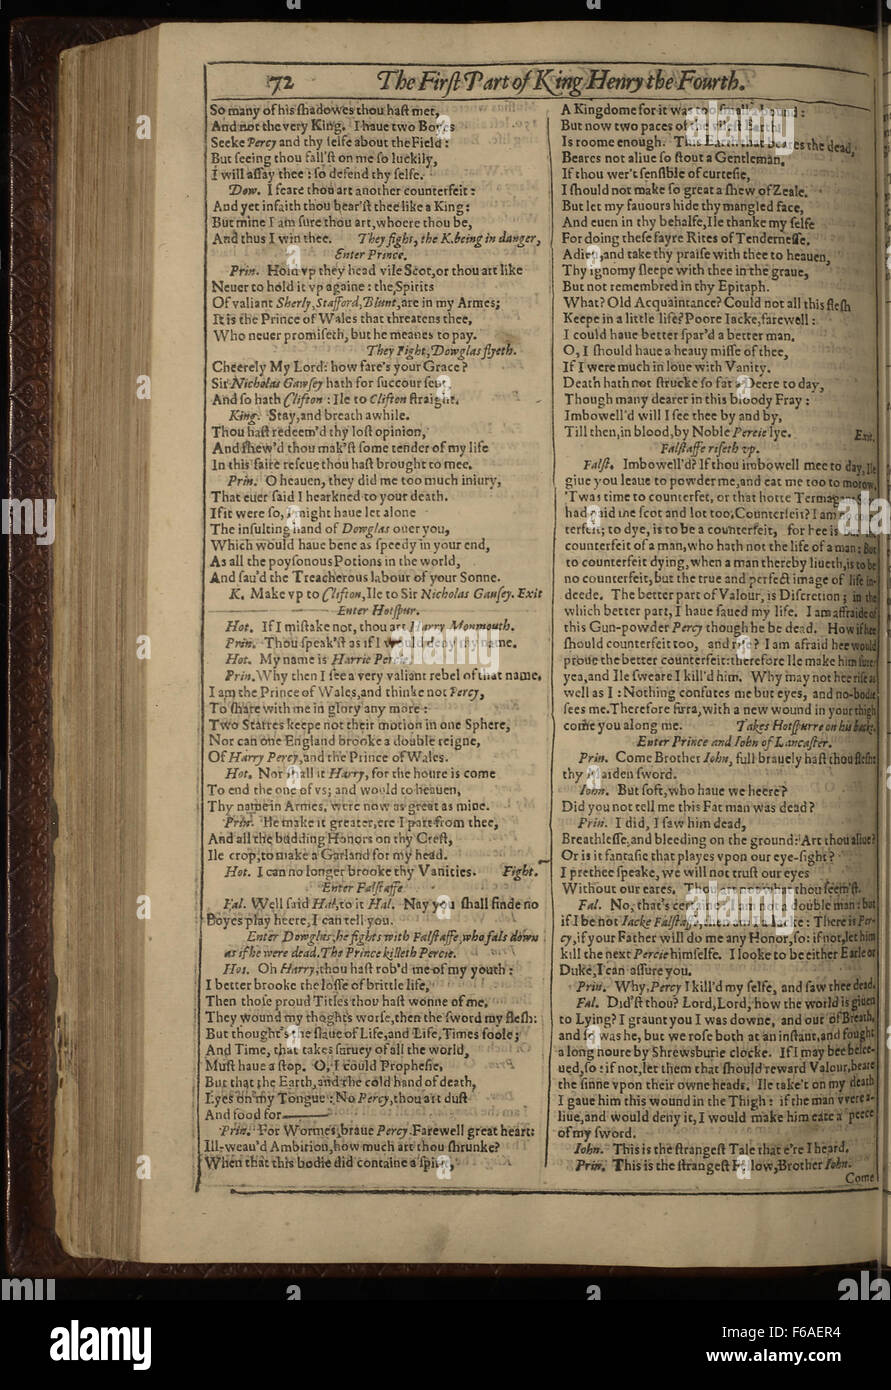 72 The First Part of King Henry the Fourth.
So many of his shadowes thou hast met,
And not the very King. I haue two Boyes
Seeke Percy and thy selfe about the Field:
But seeing thou fall'st on me so luckily,
I will assay thee: so defend thy selfe.
Dow. I feare thou art another counterfeit:
And yet infaith thou bear'st thee like a King:
But mine I am sure thou art, whoere thou be,
And thus I win thee. They fight, the K. being in danger,
Enter Prince.
Prin. Hold vp they head vile Scot, or thou art like
Neuer to hold it vp againe: the Spirits
Of valiant Sherly, Stafford, Blunt, are in my Armes;
It is the Prince of Wales that threatens thee,
Who neuer promiseth, but he meanes to pay.
They Fight, Dowglas flyeth.
Cheerely My Lord: how fare's your Grace?
Sir Nicholas Gawsey hath for succour sent,
And so hath Clifton: Ile to Clifton straight.
King. Stay, and breath awhile.
Thou hast redeem'd thy lost opinion,
And shew'd thou mak'st some tender of my life
In this faire rescue thou hast brought to mee.
Prin. O heauen, they did me too much iniury,
That euer said I hearkned to your death.
If it were so, I might haue let alone
The insulting hand of Dowglas ouer you,
Which would haue bene as speedy in your end,
As all the poysonous Potions in the world,
And sau'd the Treacherous labour of your Sonne.
K. Make vp to Clifton, Ile to Sir Nicholas Gausey. Exit
Enter Hotspur.
Hot. If I mistake not, thou art Harry Monmouth.
Prin. Thou speak'st as if I would deny my name.
Hot. My name is Harrie Percie.
Prin. Why then I see a very valiant rebel of that name.
I am the Prince of Wales, and thinke not Percy,
To share with me in glory any more:
Two Starres keepe not their motion in one Sphere,
Nor can one England brooke a double reigne,
Of Harry Percy, and the Prince of Wales.
Hot. Nor shall it Harry, for the houre is come
To end the one of vs; and would to heauen,
Thy name in Armes, were now as great as mine.
Prin. Ile make it greater, ere I part from thee,
And all the budding Honors on thy Crest,
Ile crop, to make a Garland for my head.
Hot. I can no longer brooke thy Vanities. Fight.
Enter Falstaffe
Fal. Well said Hal, to it Hal. Nay you shall finde no
Boyes play heere, I can tell you.
Enter Dowglas, he fights with Falstaffe, who fals down
as if he were dead. The Prince killeth Percie.
Hot. Oh Harry, thou hast rob'd me of my youth:
I better brooke the losse of brittle life,
Then those proud Titles thou hast wonne of me,
They wound my thoghts worse, then the sword my flesh:
But thought's the slaue of Life, and Life, Times foole;
And Time, that takes suruey of all the world,
Must haue a stop. O, I could Prophesie,
But that the Earth, and the cold hand of death,
Lyes on my Tongue: No Percy, thou art dust
And food for———
Prin. For Wormes, braue Percy. Farewell great heart:
Ill-weau'd Ambition, how much art thou shrunke?
When that this bodie did containe a spirit,
A Kingdome for it was too small a bound:
But now two paces of the vilest Earth
Is roome enough. This Earth that beares the dead,
Beares not aliue so stout a Gentleman.
If thou wer't sensible of curtesie,
I should not make so great a shew of Zeale.
But let my fauours hide thy mangled face,
And euen in thy behalfe, Ile thanke my selfe
For doing these fayre Rites of Tendernesse.
Adieu, and take thy praise with thee to heauen,
Thy ignomy sleepe with thee in the graue,
But not remembred in thy Epitaph.
What? Old Acquaintance? Could not all this flesh
Keepe in a little life? Poore Iacke, farewell:
I could haue better spar'd a better man.
O, I should haue a heauy misse of thee,
If I were much in loue with Vanity.
Death hath not strucke so fat a Deere to day,
Though many dearer in this bloody Fray:
Imbowell'd will I see thee by and by,
Till then, in blood, by Noble Percie lye. Exit.
Falstaffe riseth vp.
Falst. Imbowell'd? If thou imbowell mee to day, Ile
giue you leaue to powder me, and eat me too to morow.
'Twas time to counterfet, or that hotte Termagant Scot
had paid me scot and lot too. Counterfeit? I am no counterfeit;
to dye, is to be a counterfeit, for hee is but the
counterfeit of a man, who hath not the life of a man: But
to counterfeit dying, when a man thereby liueth, is to be
no counterfeit, but the true and perfect image of life in-
deede. The better part of Valour, is Discretion; in the
which better part, I haue saued my life. I am affraide of
this Gun-powder Percy though he be dead. How if hee
should counterfeit too, and rise? I am afraid hee would
proue the better counterfeit: therefore Ile make him sure:
yea, and Ile sweare I kill'd him. Why may not hee rise as
well as I: Nothing confutes me but eyes, and no-bodie
sees me. Therefore sirra, with a new wound in your thigh
come you along me. Takes Hotspurre on his backe.
Enter Prince and Iohn of Lancaster.
Prin. Come Brother Iohn, full brauely hast thou flesht
thy Maiden sword.
Iohn. But soft, who haue we heere?
Did you not tell me this Fat man was dead?
Prin. I did, I saw him dead,
Breathlesse, and bleeding on the ground: Art thou aliue?
Or is it fantasie that playes vpon our eye-sight?
I prethee speake, we will not trust our eyes
Without our eares. Thou art not what thou seem'st.
Fal. No, that's certaine: I am not a double man: but
if I be not Iacke Falstaffe, then am I a Iacke: There is Per-
cy, if your Father will do me any Honor, so: if not, let him
kill the next Percie himselfe. I looke to be either Earle or
Duke, I can assure you.
Prin. Why, Percy I kill'd my selfe, and saw thee dead.
Fal. Did'st thou? Lord, Lord, how the world is giuen
to Lying? I graunt you I was downe, and out of Breath,
and so was he, but we rose both at an instant, and fought
a long houre by Shrewsburie clocke. If I may bee belee-
ued, so: if not, let them that should reward Valour, beare
the sinne vpon their owne heads. Ile take't on my death
I gaue him this wound in the Thigh: if the man vvere a-
liue, and would deny it, I would make him eate a peece
of my sword.
Iohn. This is the strangest Tale that e're I heard.
Prin. This is the strangest Fellow, Brother Iohn.
Come
a alamy stock photo
alamy
Image ID: F6AER4
www.alamy.com